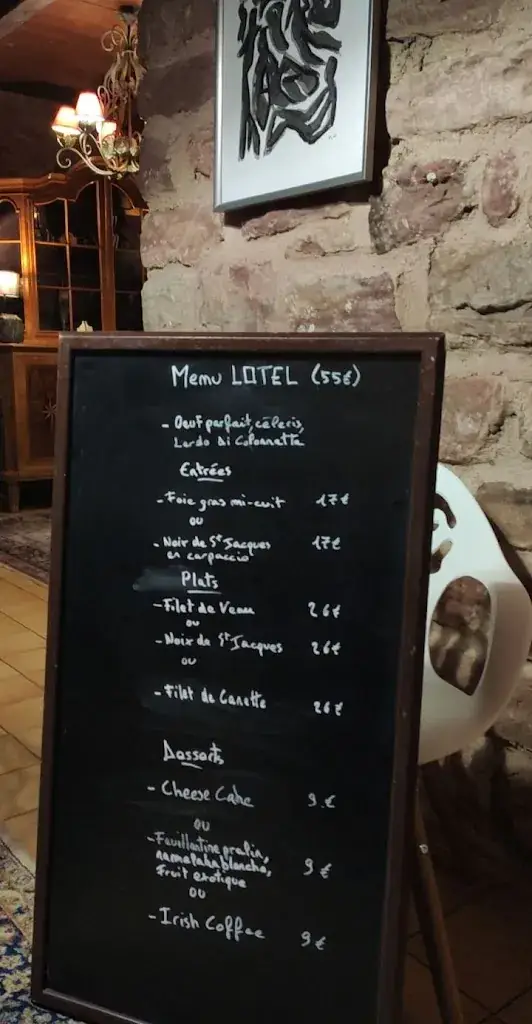 Menu LOTEL (55€)
- Oeuf parfait, céleris,
Lardo Di Colonnatta
Entrées
- Foie gras mi-cuit 17€
ou
- Noix de St Jacques 17€
en carpaccio
Plats
- Filet de Veau 26€
ou
- Noix de St Jacques 26€
ou
- Filet de Canette 26€
Desserts
- Cheese Cake 9€
ou
- Feuillantine pralin,
namalaka blanche, 9€
Fruit exotique
ou
- Irish Coffee 9€